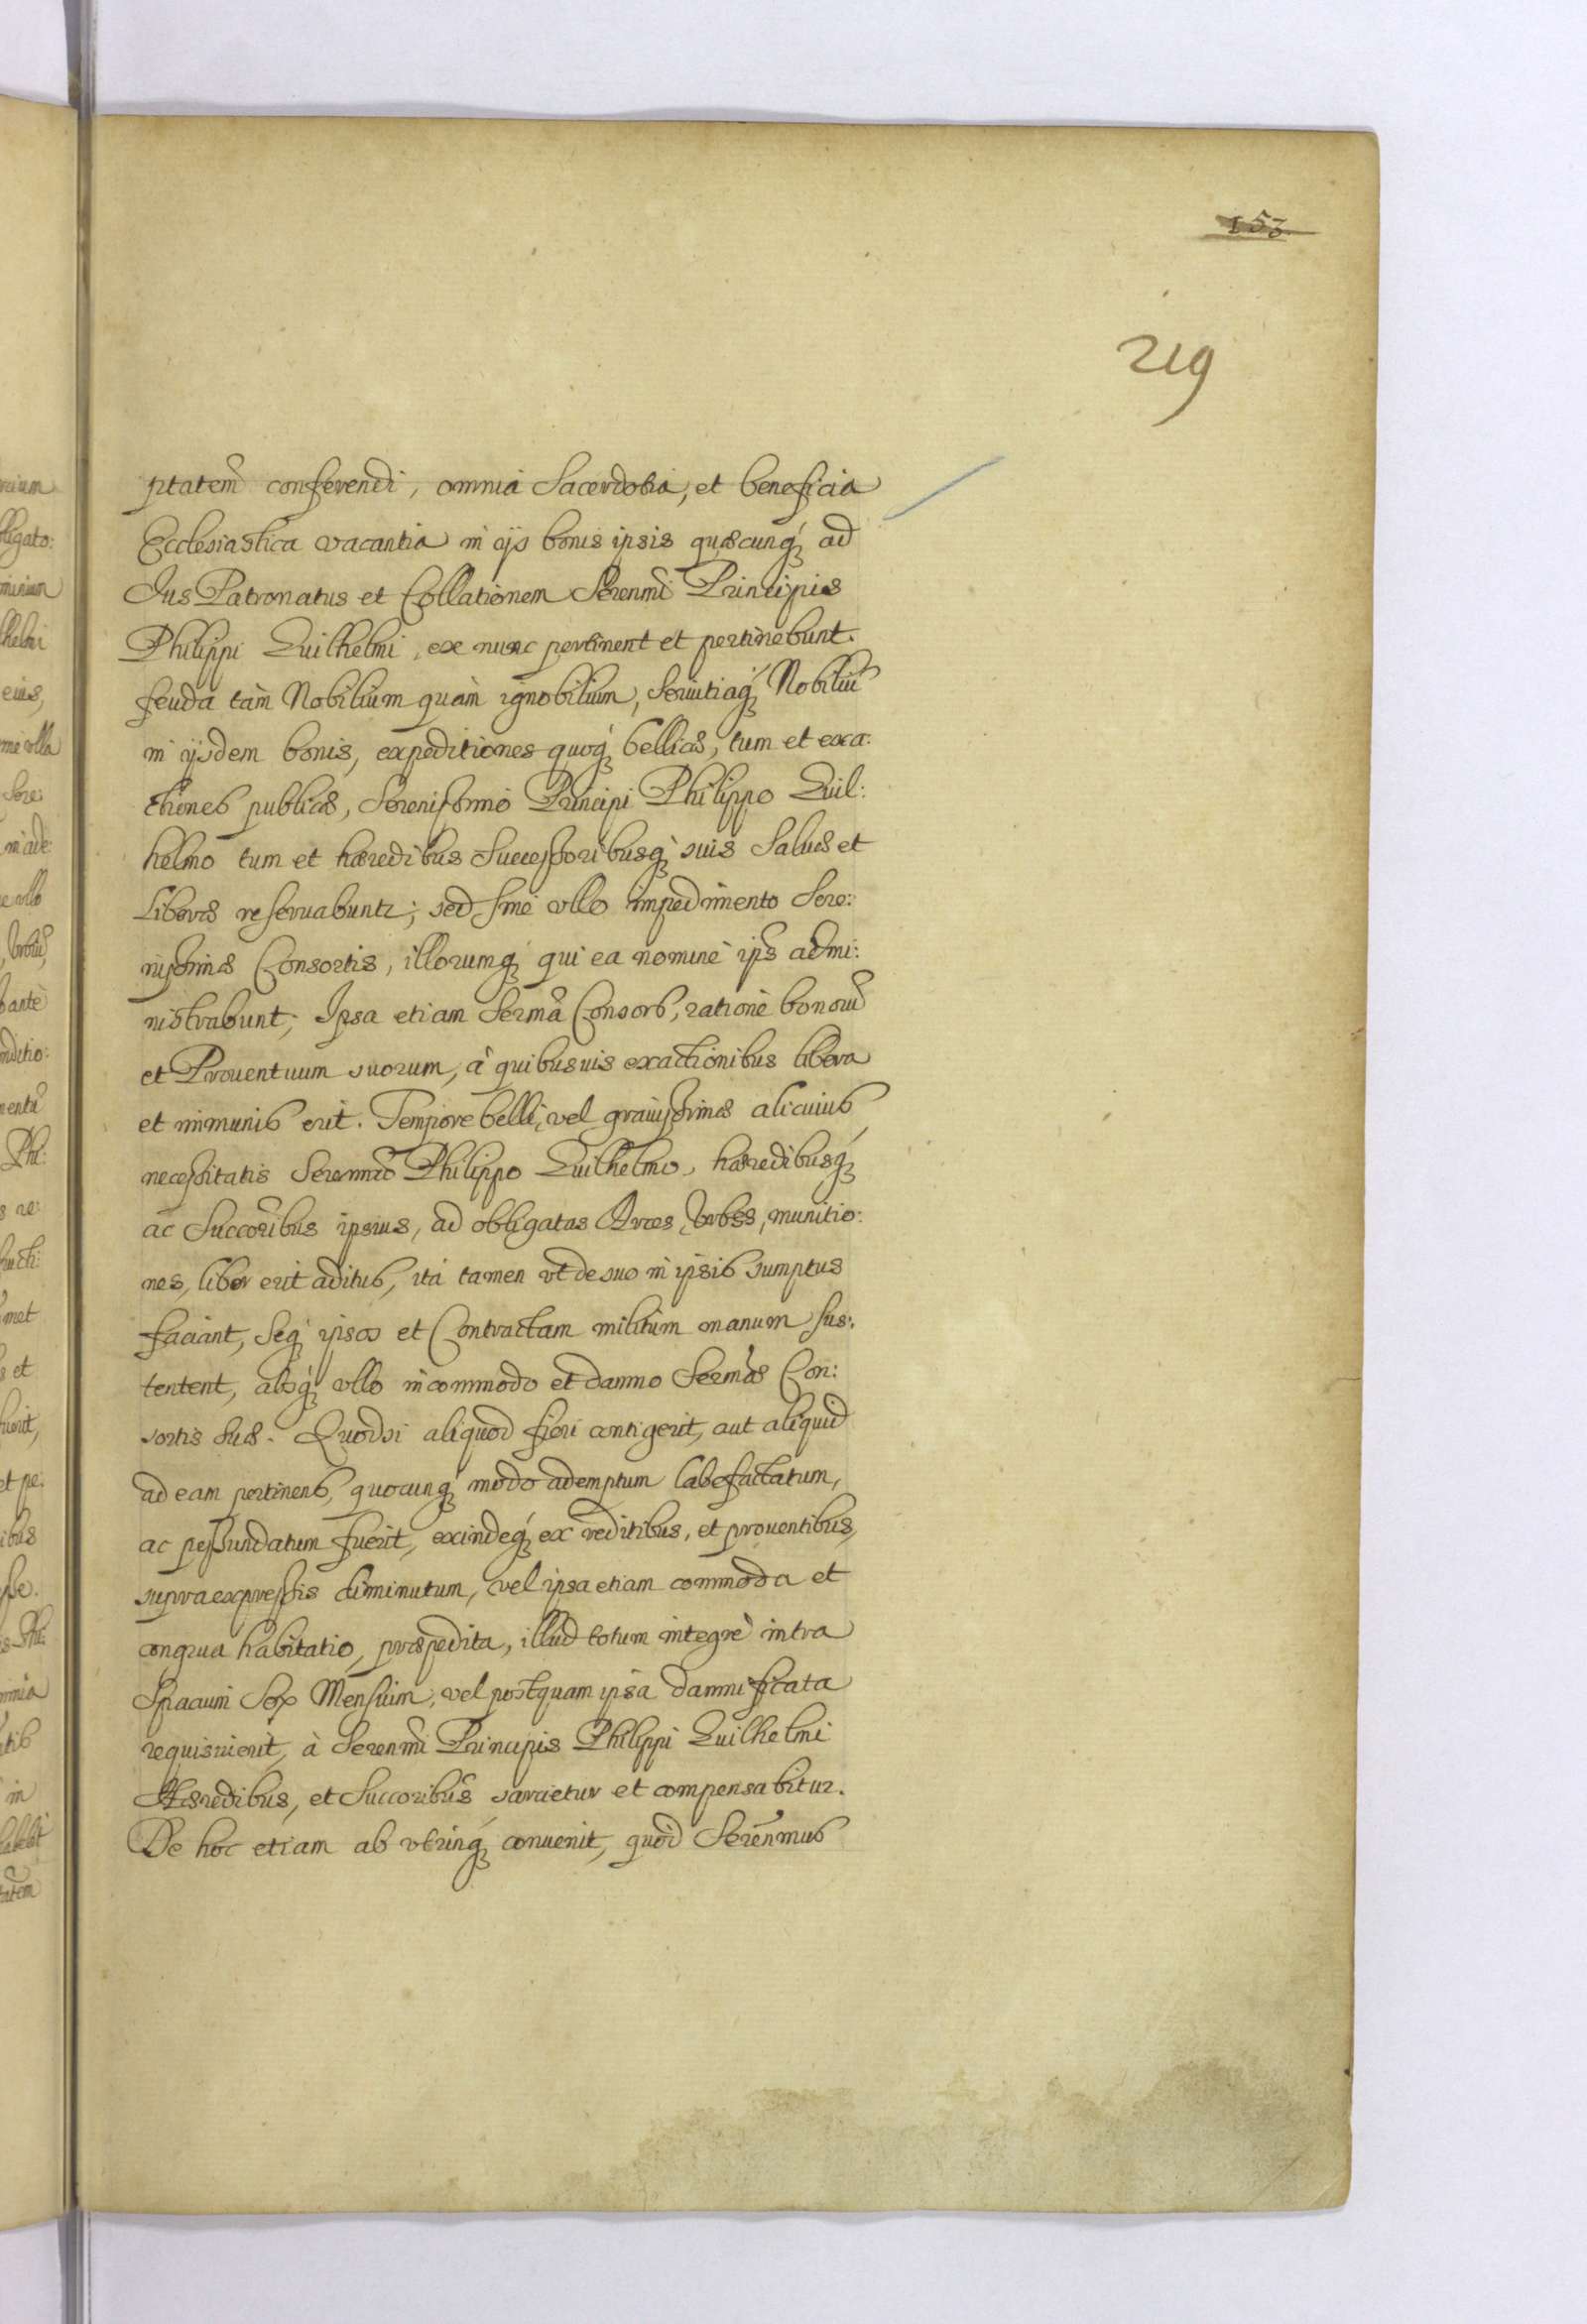 153
219
ptatem̃ conferendi, omnia Sacerdotia, et beneficia
Ecclesiastica vacantia in ijs bonis ipsis quæcunq́ue ad
Jus Patronatus et Collationem Serenm̃i Principis
Philippi Guilhelmi, ex nunc pertinent et pertinebunt.
feuda tàm Nobilium quàm ignobilium, seruitiaq́ꝫ Nobiliũ
in ijsdem bonis, expeditiones quoq́ꝫ bellicæ, tum et exa:
ctiones publicæ, Serenissimo Principi Philippo Guil:
helmo tum et hæredibus Successoribusq́ꝫ suis Saluæ et
Liberæ reseruabuntr; sed sine vllo impedimento Sere:
nissimæ Consortis, illorumq́ꝫ qui ea nomine ips̃ admi:
nistrabunt; Ipsa etiam Serm̃a Consors, ratione bonorũ
et Prouentuum suorum, à quibusuis exactionibus libera
et immunis erit. Tempore belli, vel grauissimæ alicuius
necessitatis Serenm̃o Philippo Guilhelmo, hæredibusq́ꝫ
ac Succor̃ibus ipsius, ad obligatas Arces, Vrbes, munitio:
nes, liber erit aditus, ità tamen vt de suo in ipsis sumptus
faciant, Seq́ꝫ ipsos et Contractam militum manum sus:
tentent, absq́ꝫ vllo incommodo et damno Serm̃æ Con:
sortis suæ. Quodsi aliquod fieri contigerit, aut aliquid
ad eam pertinens, quocunq́ꝫ modo ademptum labefactatum,
ac pessundatum fuerit, exindeq́ꝫ ex reditibus, et prouentibus,
supraexpressis diminutum, vel ipsa etiam commoda et
congrua habitatio, præpedita, illud totum integrè intra
Spacium Sex Mensium, vel postquam ipsa damnificata
requisiuerit, à Serenm̃i Principis Philippi Guilhelmi
Hæredibus, et Succorib̃us sarcietur et compensabitur.
De hoc etiam ab vtrinq́ꝫ conuenit, quòd Serẽnmus